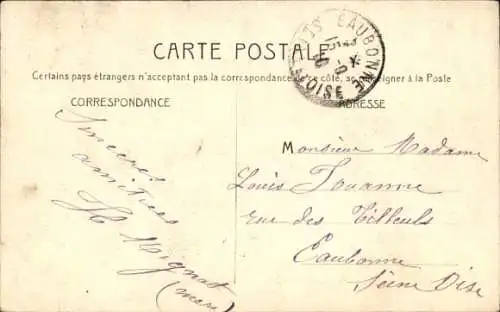 CARTE POSTALE
EAUBONNE
OISE
Certains pays étrangers n'acceptant pas la correspondance de ce côté, se renseigner à la Poste
CORRESPONDANCE
ADRESSE
Sincères
amitiés
H Mignot
Monsieur Madame
Louis Jouanne
rue des Tilleuls
Eaubonne
Seine Oise